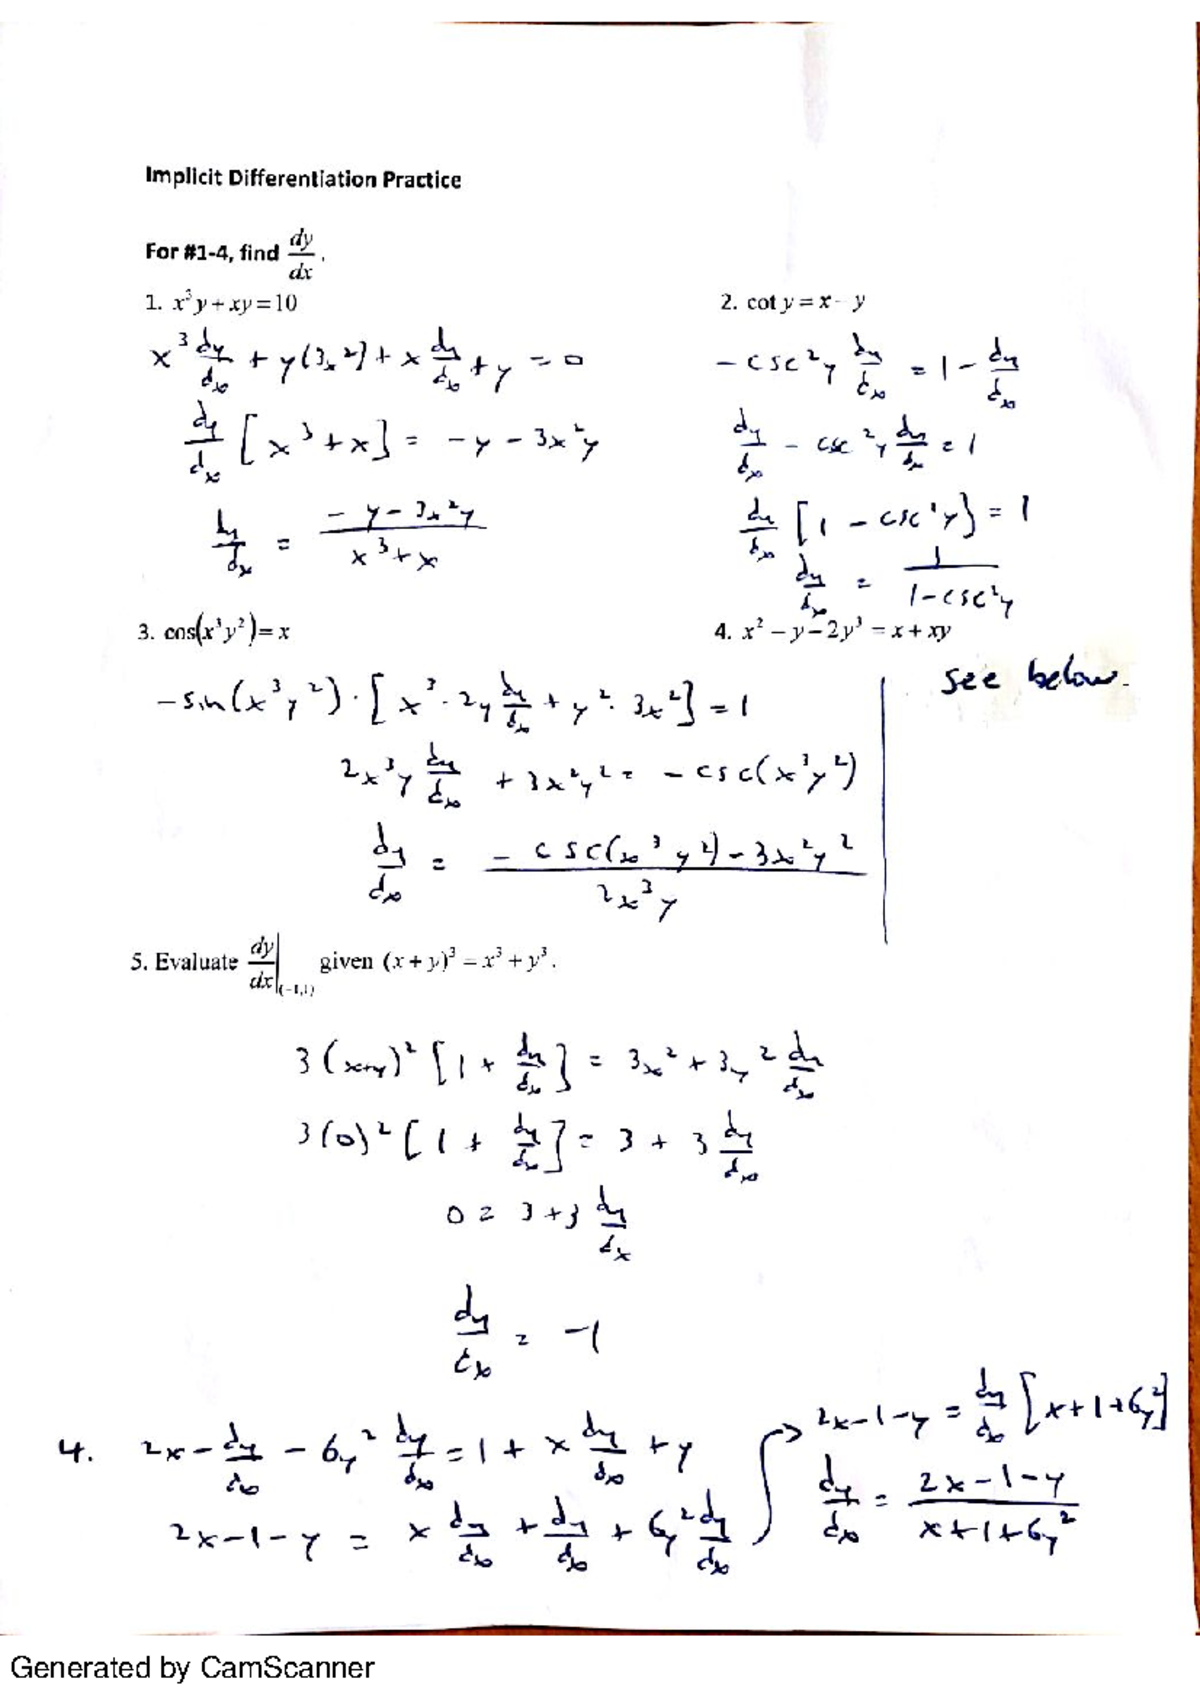 Implicit Differentiation Practice
For #1-4, find dy/dx.
1. x³y + xy = 10
x³ dy/dx + y(3x²) + x dy/dx + y = 0
dy/dx [x³ + x] = -y - 3x²y
dy/dx = (-y - 3x²y)/(x³ + x)
2. cot y = x - y
-csc²y dy/dx = 1 - dy/dx
dy/dx - csc²y dy/dx = 1
dy/dx [1 - csc²y] = 1
dy/dx = 1/(1 - csc²y)
3. cos(x³y²) = x
-sin(x³y²) · [x³ · 2y dy/dx + y² · 3x²] = 1
2x³y dy/dx + 3x²y² = -csc(x³y²)
dy/dx = (-csc(x³y²) - 3x²y²)/(2x³y)
4. x² - y - 2y³ = x + xy
see below.
5. Evaluate dy/dx |(-1,1) given (x + y)³ = x³ + y³.
3(x+y)² [1 + dy/dx] = 3x² + 3y² dy/dx
3(0)² [1 + dy/dx] = 3 + 3 dy/dx
0 = 3 + 3 dy/dx
dy/dx = -1
4. 2x - dy/dx - 6y² dy/dx = 1 + x dy/dx + y
2x - 1 - y = x dy/dx + dy/dx + 6y² dy/dx
→ 2x - 1 - y = dy/dx [x + 1 + 6y²]
dy/dx = (2x - 1 - y)/(x + 1 + 6y²)
Generated by CamScanner